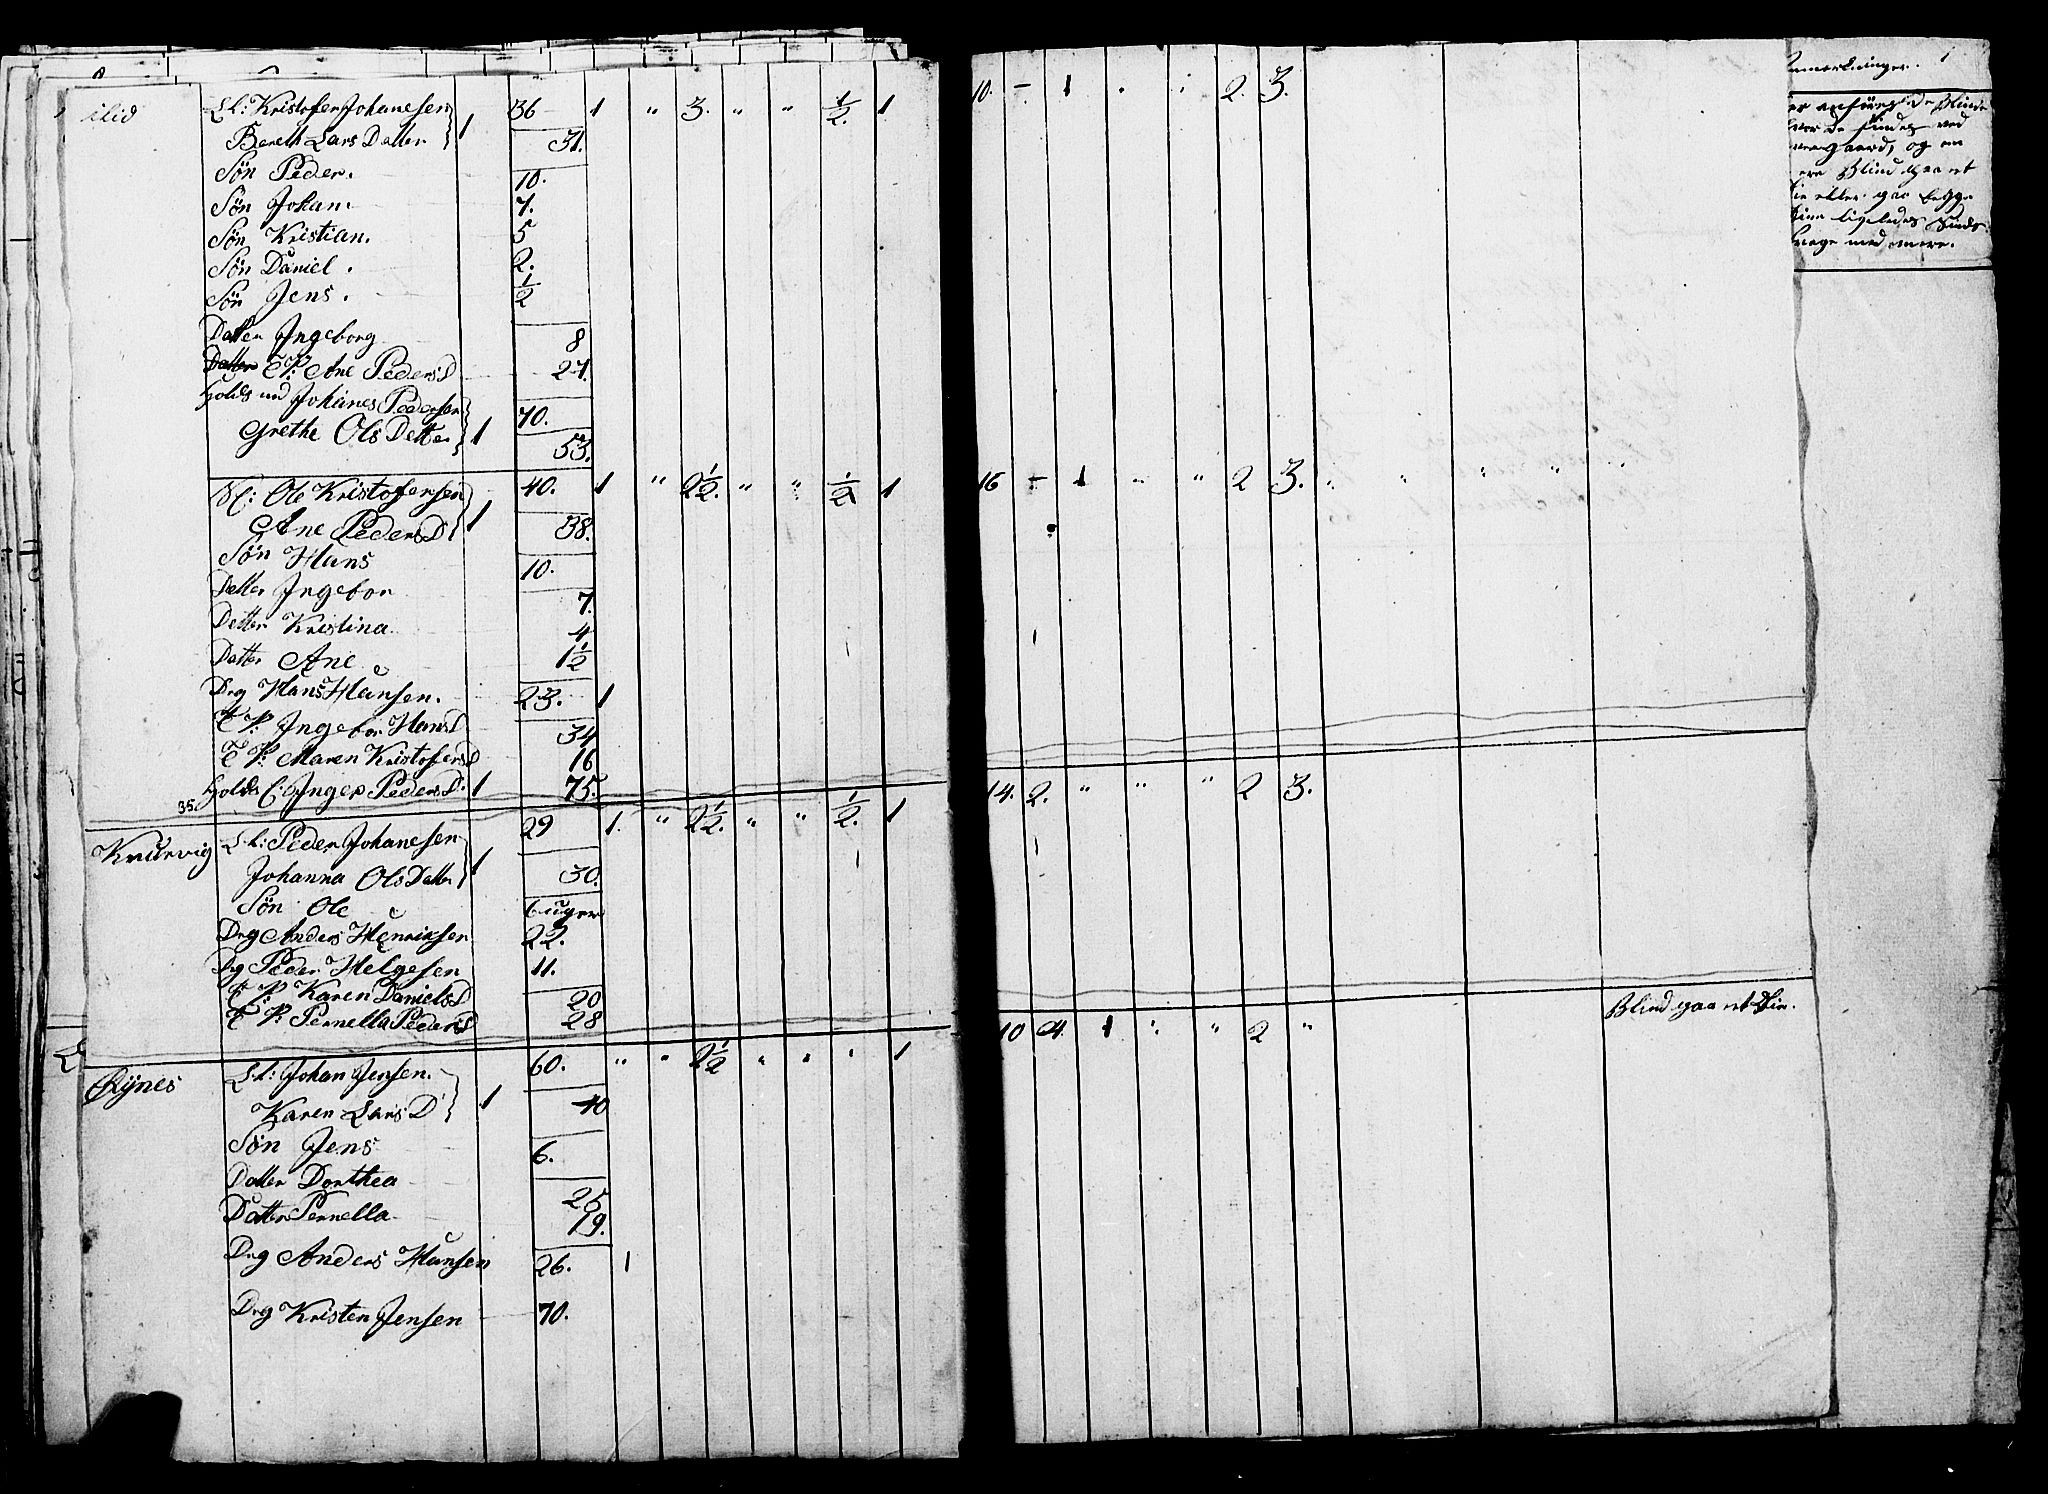 ilid L.L: Kristofer Johanesen 1 36 1 " 3. " " ½. 1 10. - 1 " : 2. 3.
Bereth Lars Datter 31.
Søn Peder. 10.
Søn Johan. 7.
Søn Kristian. 5
Søn Daniel. 2.
Søn Jens. ½
Datter Ingeborg 8
T P: Ane Peders D 27.
Johanes Pedersen 70.
Grethe Ols Datter 1 53.
Ole Kristofersen 40. 1 " 2½. " " ½ 1 16 - 1 " " 2 3. " " " " "
Ane Peders D 1 38.
Søn Hans 10.
Datter Ingebor 7.
Datter Kristina 4
Datter Ane 1½
Drg Hans Hansen. 23. 1
T P: Ingebor Hans D 34
T P: Maren Kristofers D 16
Inger Peders D. 1 75.
35.
Krurvig L.L: Peder Johanesen 29 1. " 2½. " " ½. 1 14. 2. " " " 2 3.
Johanna Ols Datter 1 30.
Søn Ole 6 uger
Drg Anders Henriksen 22.
Dg Peder Helgesen 11.
T P: Karen Daniels D 20
T P: Pernella Peders D 28
Rynes L.L: Johan Jensen. 60. " " 2½ " " " 1 10 4. 1 " " 2 " Blind paa et Øie.
Karen Lars D 1 40
Søn Jens 6.
Datter Dorthea 25
Datter Pernella 19.
Drg Anders Hansen 26. 1
Drg Kristen Jensen 70.
nmerkninger.
er anføres de Blinde
hvor de findes ved
gaard, og om
ere Blind paa et
ie eller paa begge
Øine ligeledes Sinds
svage med mere.